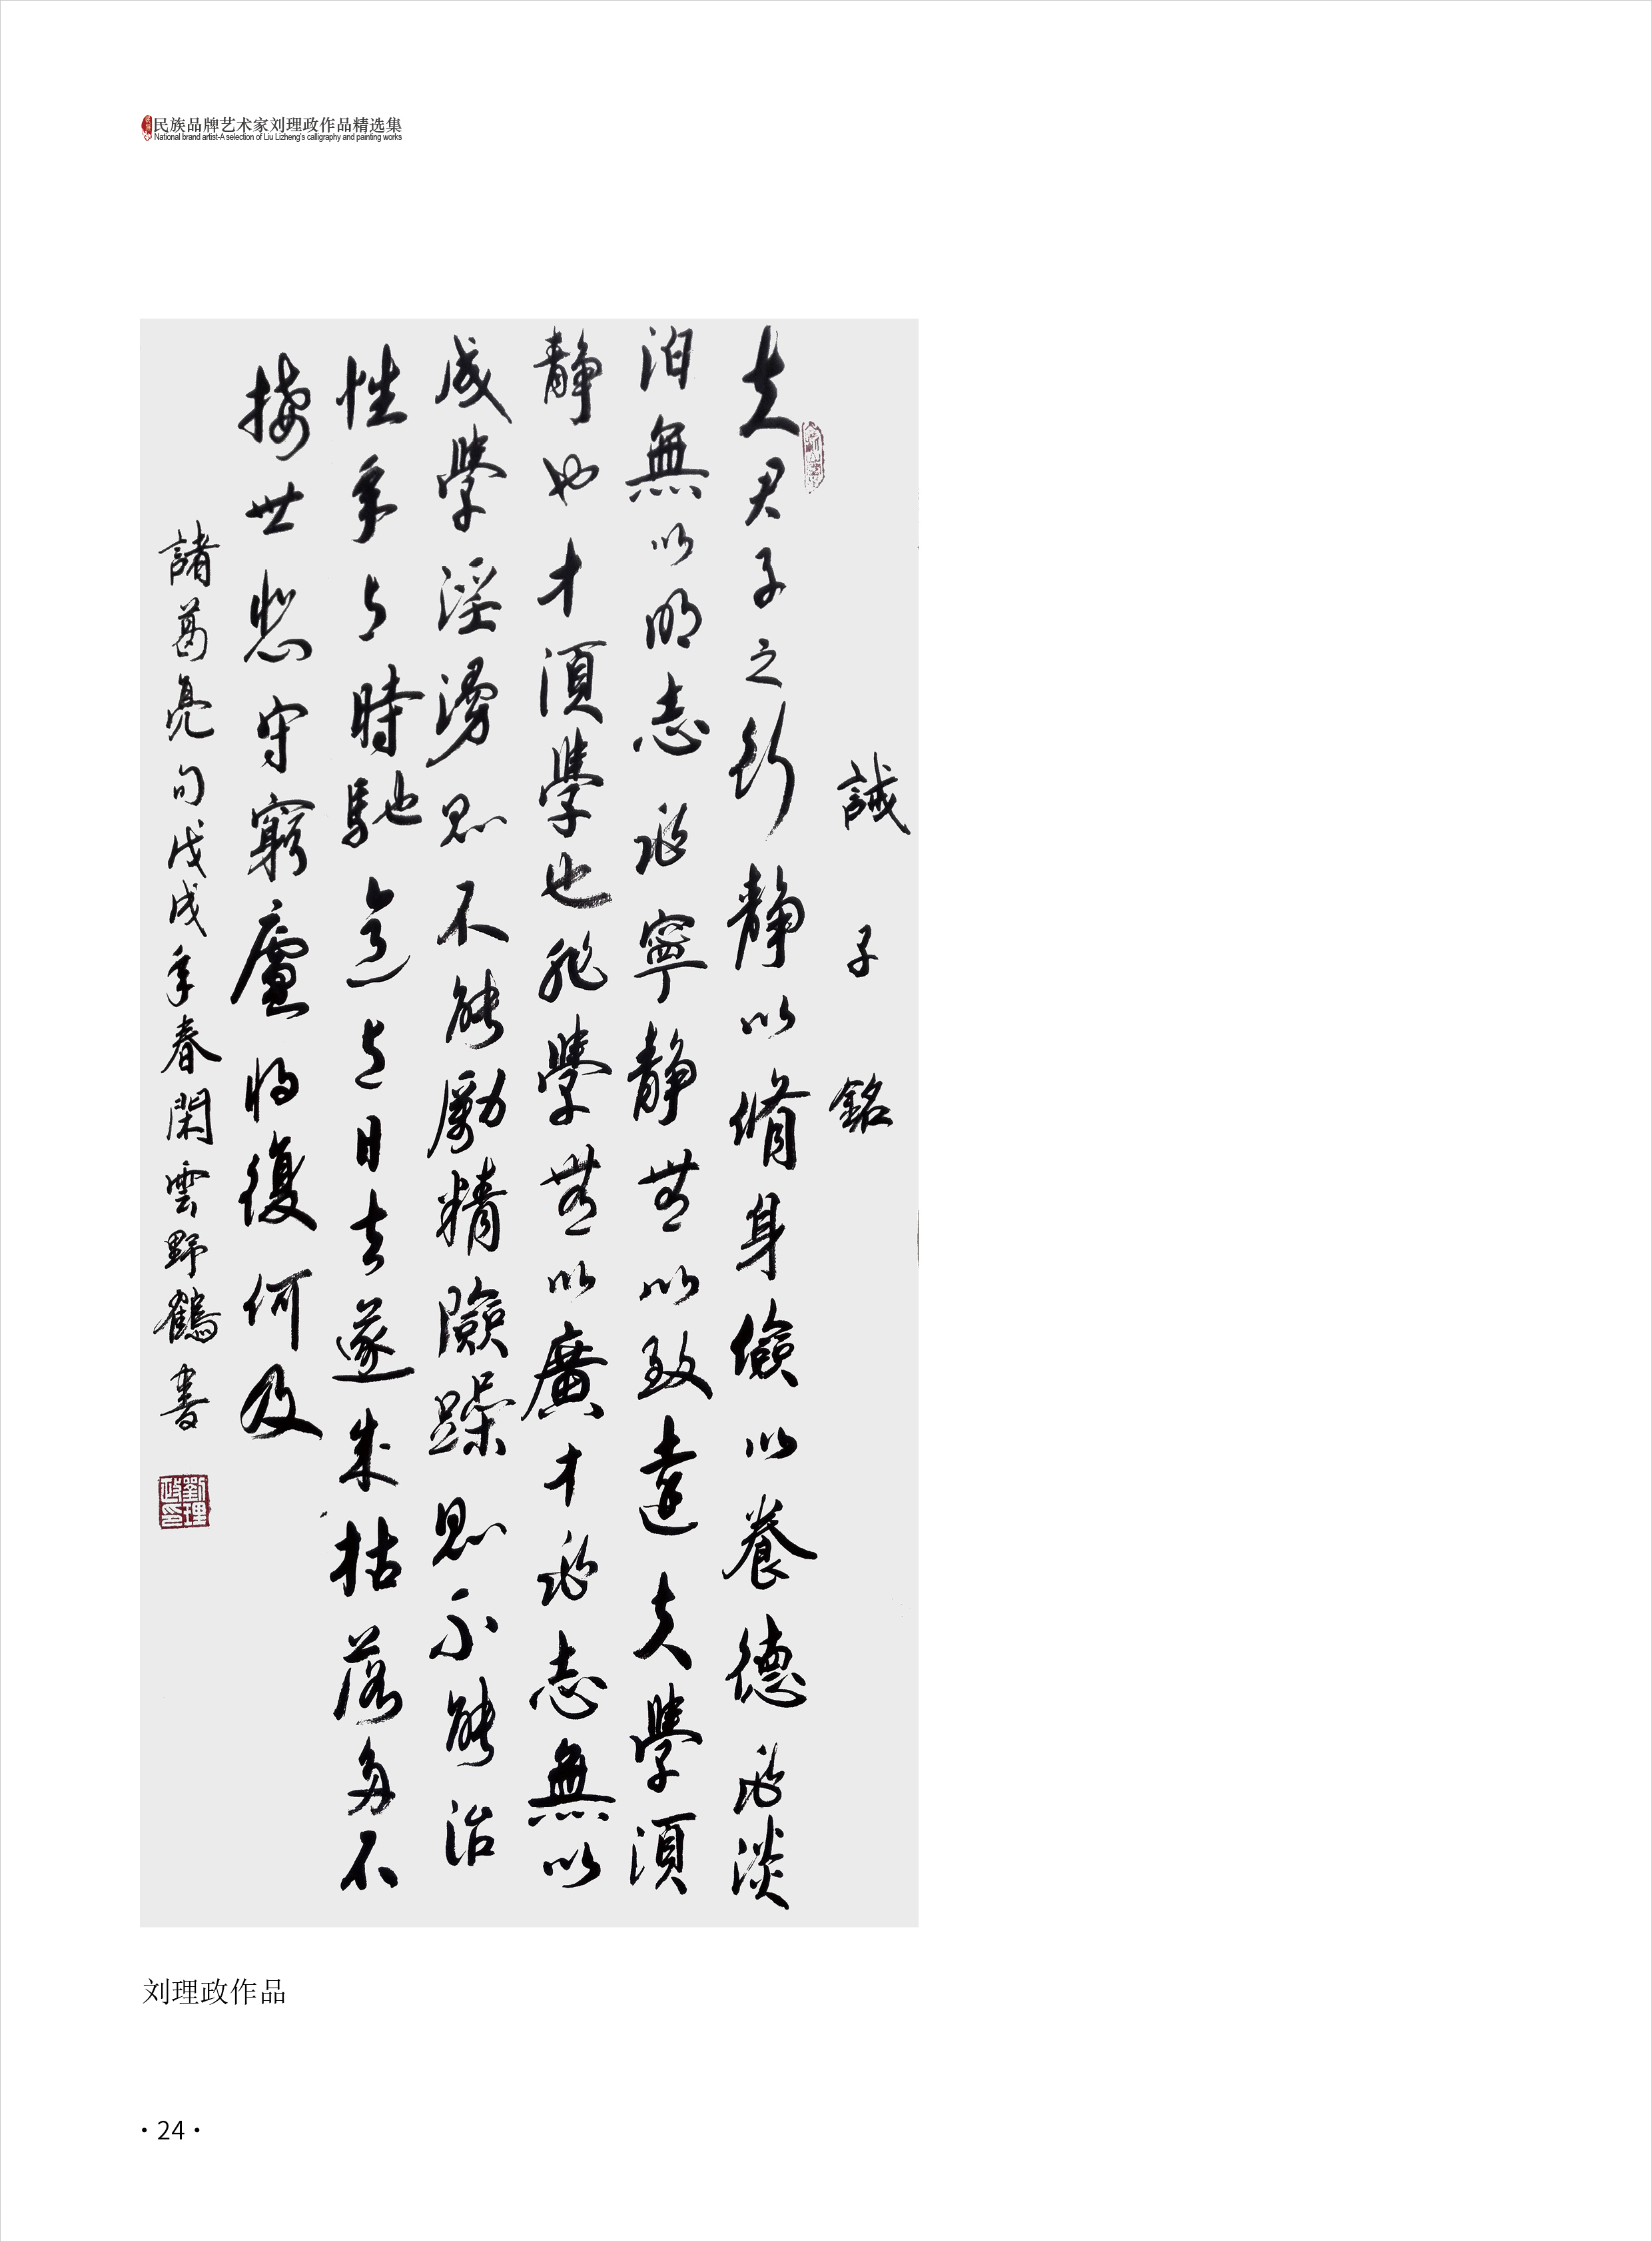 民族品牌艺术家刘理政作品精选集
National brand artist-A selection of Liu Lizheng's calligraphy and painting works
誡子銘
夫君子之行靜以脩身儉以養德非淡
泊無以明志非寧靜無以致遠夫學須
靜也才須學也非學無以廣才非志無以
成學淫漫則不能勵精險躁則不能治
性年与時馳意与日去遂成枯落多不
接世悲守窮廬將復何及
諸葛亮句戊戌年春閑雲野鶴書
劉理政印
刘理政作品
·24·